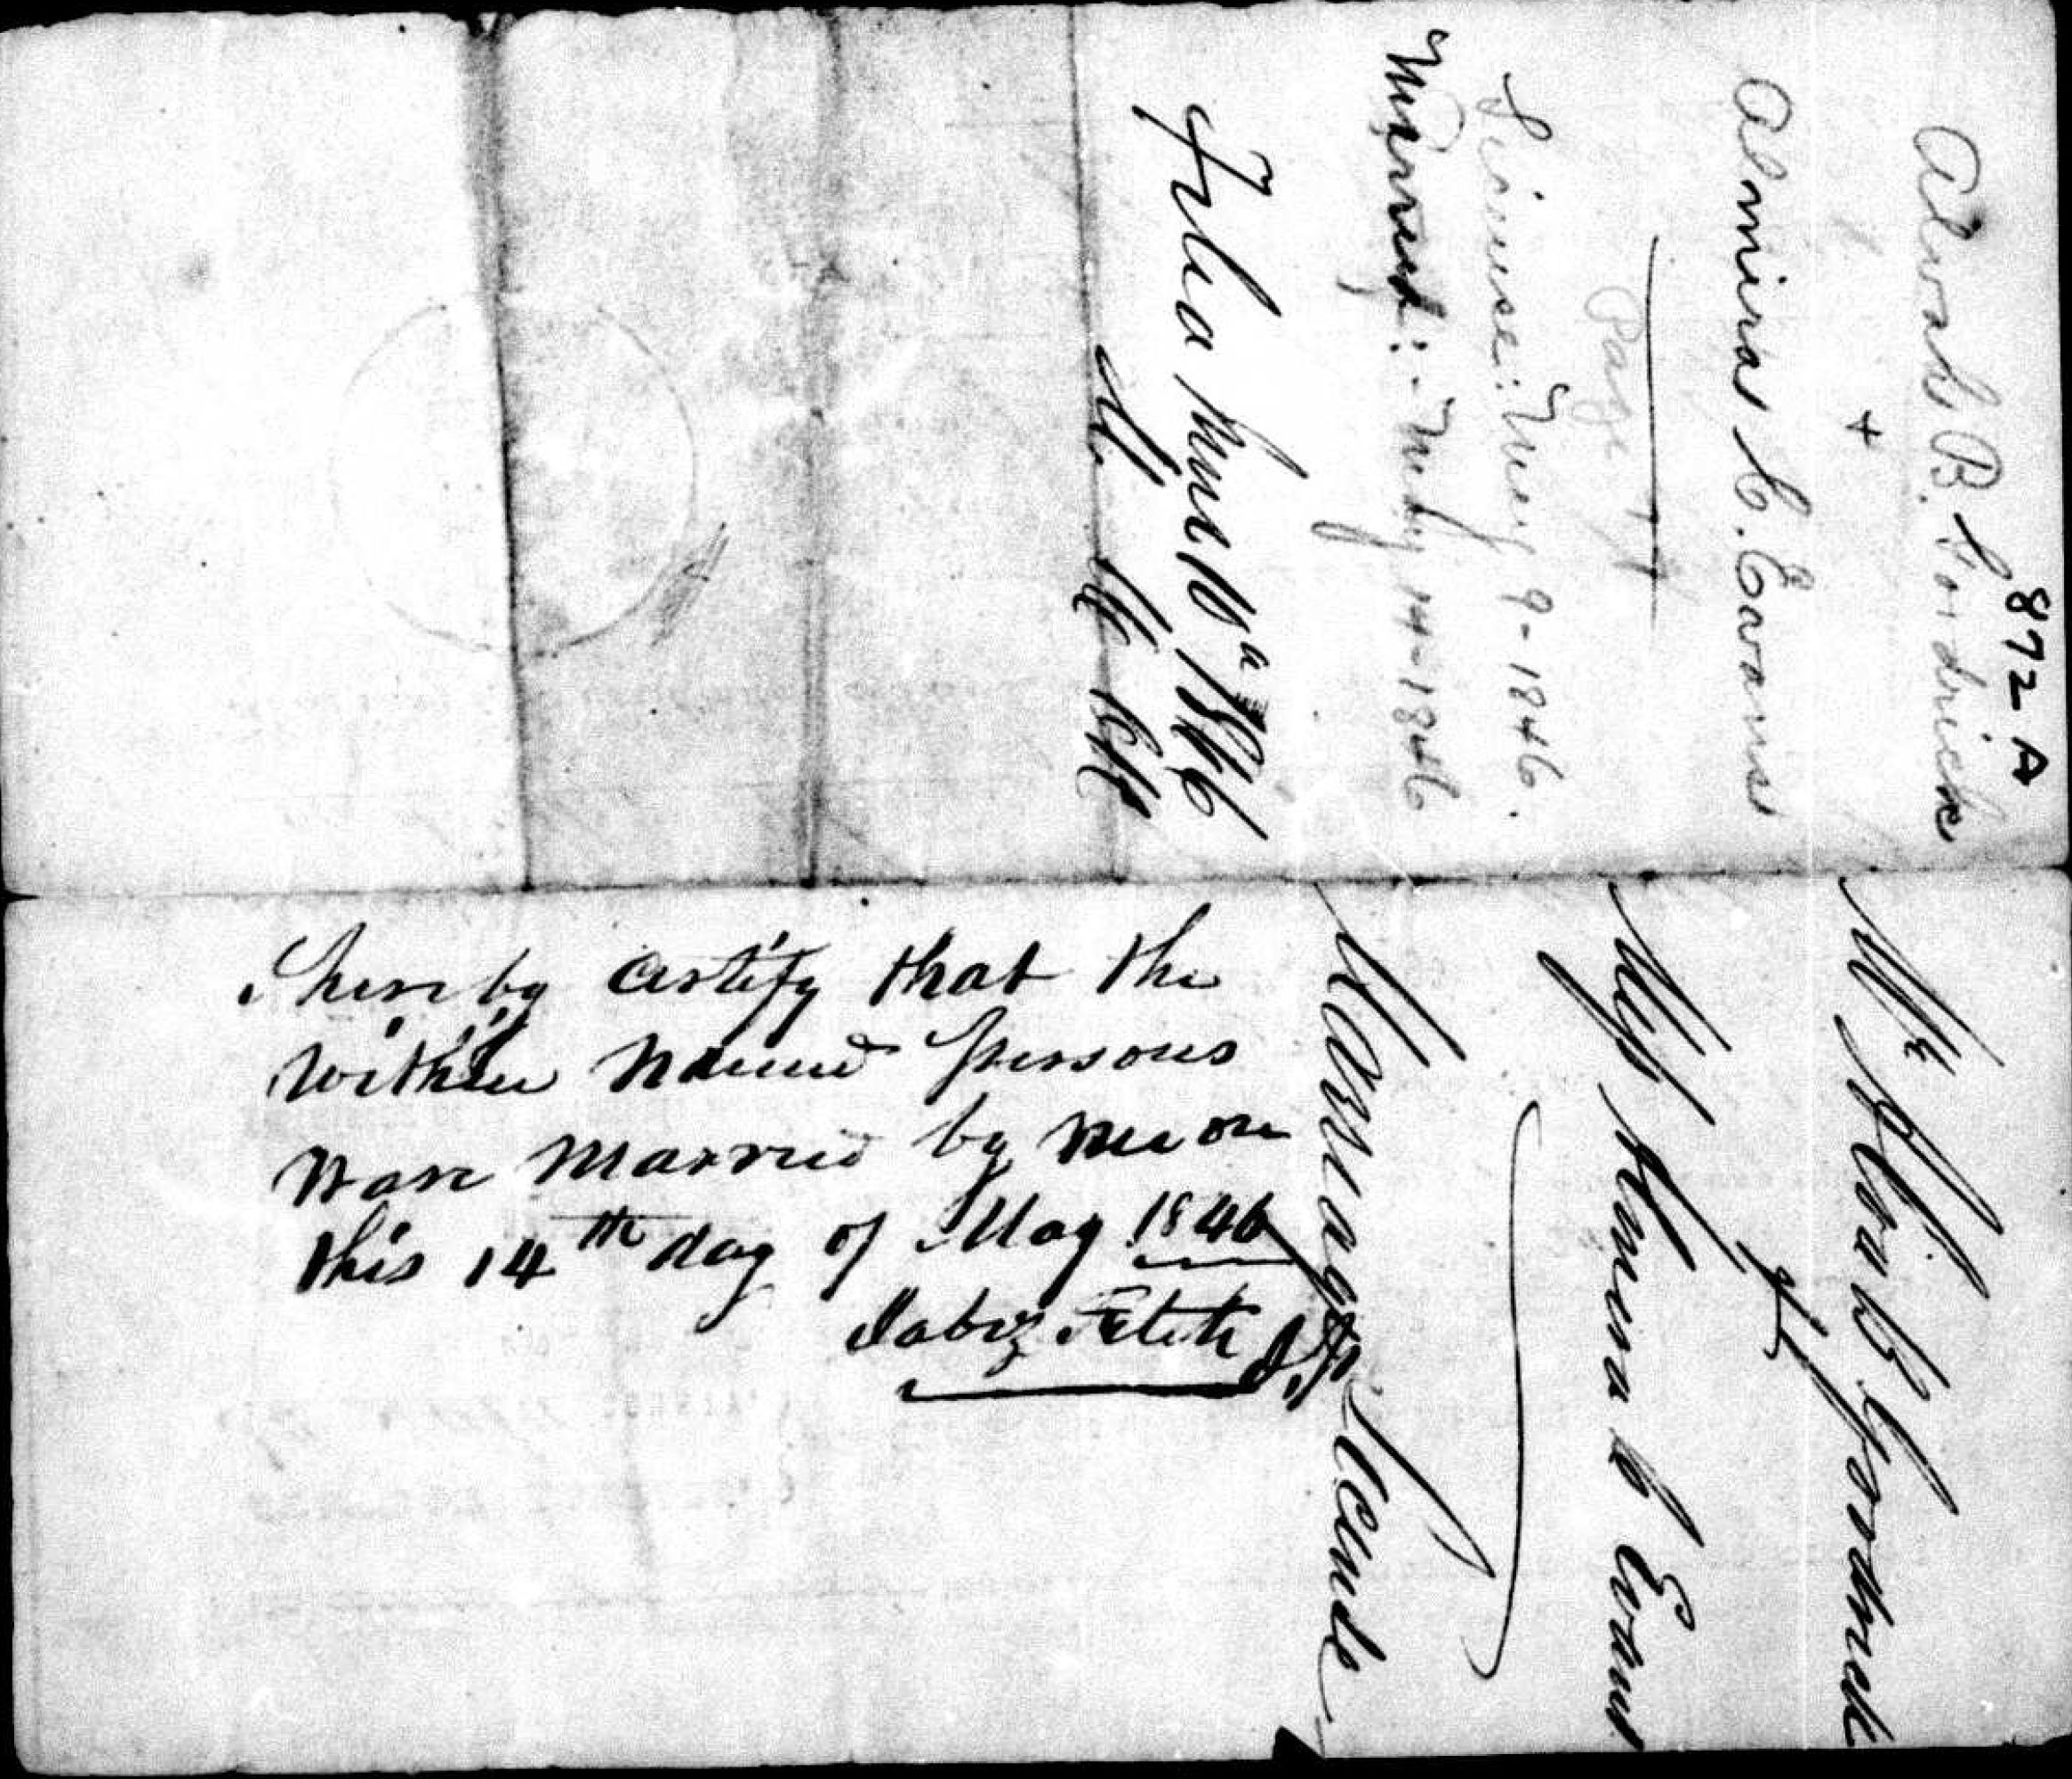 872-A
Alvah B. Goodrich
+
Almira C. Evans
Page 44
License: May 9-1846.
Married:- May 14-1846
Filed June 10th 1846
Co Clk
Mr Alva B. Goodrich
&
Miss Almira C Evans
Marriage License
I hereby certify that the
within named persons
ware married by me on
this 14th day of May 1846
Jabez Fitch